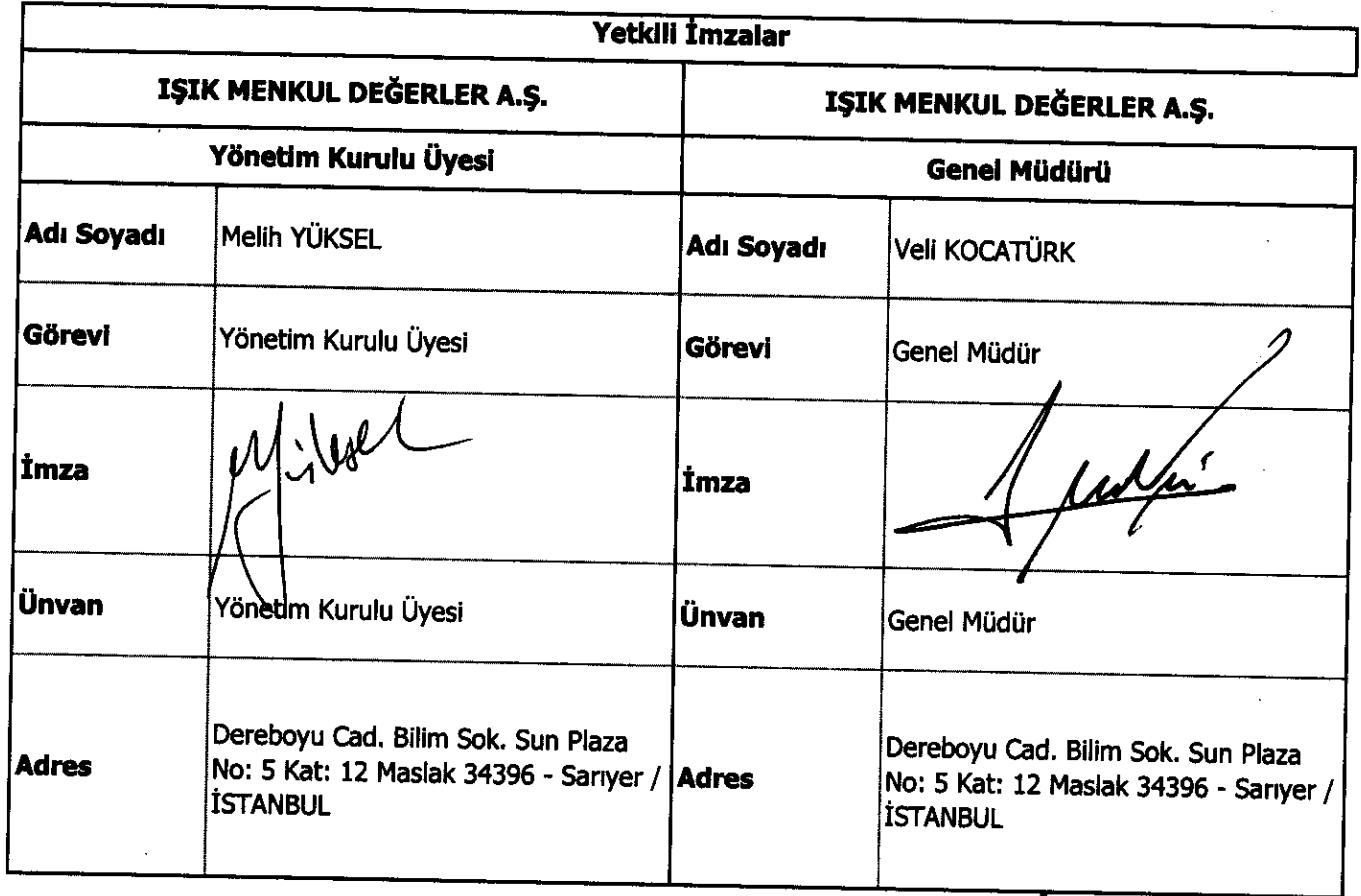 Yetkili İmzalar
IŞIK MENKUL DEĞERLER A.Ş. IŞIK MENKUL DEĞERLER A.Ş.
Yönetim Kurulu Üyesi Genel Müdürü
Adı Soyadı Melih YÜKSEL Adı Soyadı Veli KOCATÜRK
Görevi Yönetim Kurulu Üyesi Görevi Genel Müdür
İmza İmza
Ünvan Yönetim Kurulu Üyesi Ünvan Genel Müdür
Adres
Dereboyu Cad. Bilim Sok. Sun Plaza
No: 5 Kat: 12 Maslak 34396 - Sarıyer /
İSTANBUL
Adres
Dereboyu Cad. Bilim Sok. Sun Plaza
No: 5 Kat: 12 Maslak 34396 - Sarıyer /
İSTANBUL